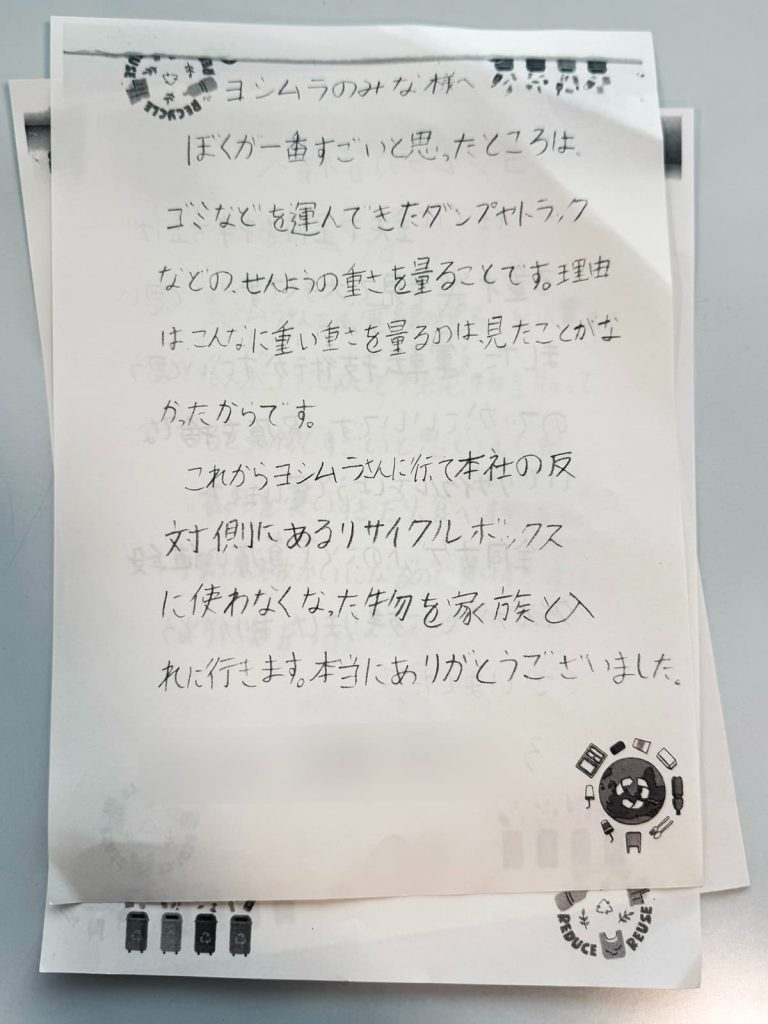 RECYCLE
ヨシムラのみな様へ
ぼくが一番すごいと思ったところは、
ゴミなどを運んできたダンプやトラック
などの、せんようの重さを量ることです。理由
は、こんなに重い重さを量るのは、見たことがな
かったからです。
これからヨシムラさんに行って本社の反
対側にあるリサイクルボックス
に使わなくなった物を家族と入
れに行きます。本当にありがとうございました。
REDUCE REUSE